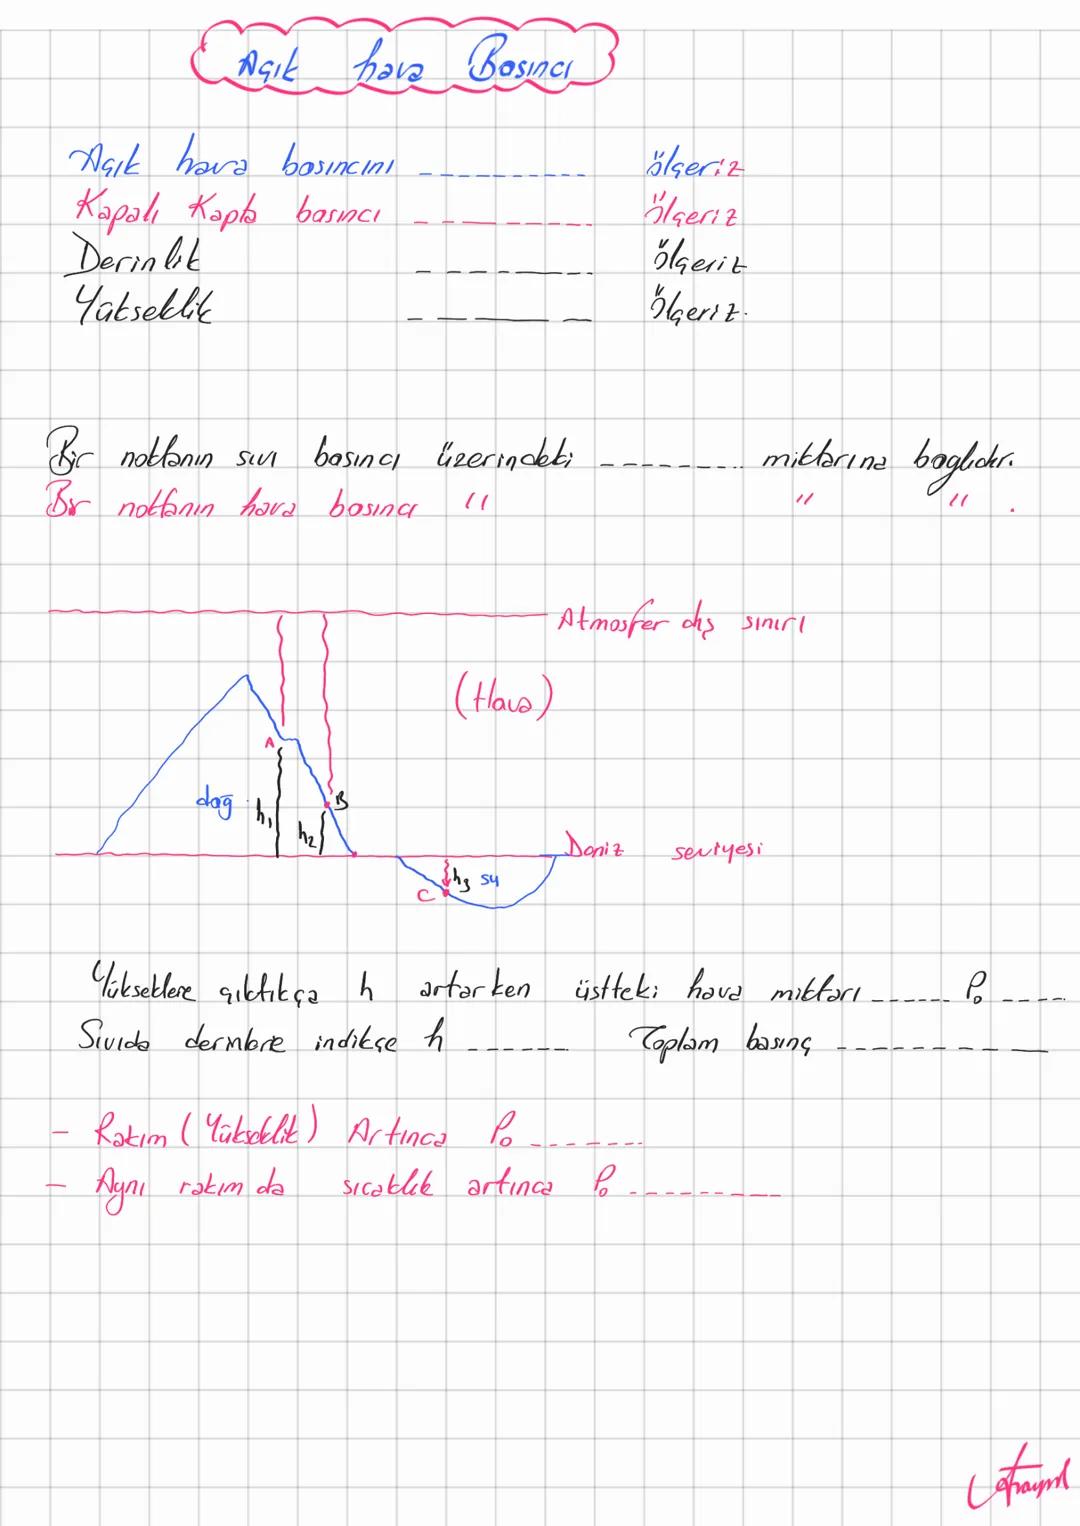 Açık hava Basıncı
Açık hava basıncını ---------- ölçeriz
Kapalı Kapta basıncı ---------- ölçeriz
Derinlik ---------- ölçeriz
Yükseklik ---------- ölçeriz.
Bir noktanın sıvı basıncı üzerindeki -------- miktarına bağlıdır.
Bir noktanın hava basıncı " " " .
Atmosfer dış sınırı
(Hava)
A
dağ h₁ B
h₂
Deniz seviyesi
C h₃ su
Yükseklere çıktıkça h artarken üstteki hava miktarı ------ P₀ ----
Sıvıda derinlere indikçe h ------ Toplam basınç ----------
- Rakım (Yükseklik) Artınca P₀ -------
- Aynı rakım da sıcaklık artınca P₀ ---------